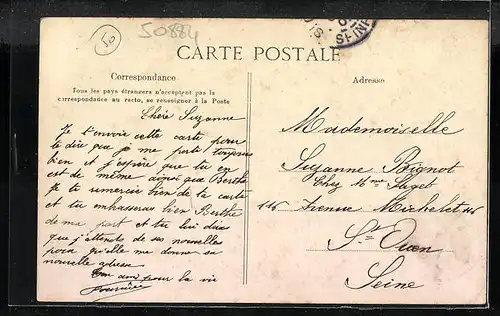 50
50884
CARTE POSTALE
Correspondance
Tous les pays étrangers n'acceptent pas la
correspondance au recto, se renseigner à la Poste
Adresse
Chère Suzanne
Je t'envoie cette carte pour
te dire que je me porte toujours
bien et j'espère que tu en
est de même ainsi que Berthe
Je te remercie bien de ta carte
et tu embrasseras bien Berthe
de ma part et tu lui diras
que j'attends de ses nouvelles
pour qu'elle me donne sa
nouvelle adresse
Ton ami pour la vie
Mademoiselle
Suzanne Bignot
Chez Mme
116 Avenue Michelet 116
St Ouen
Seine